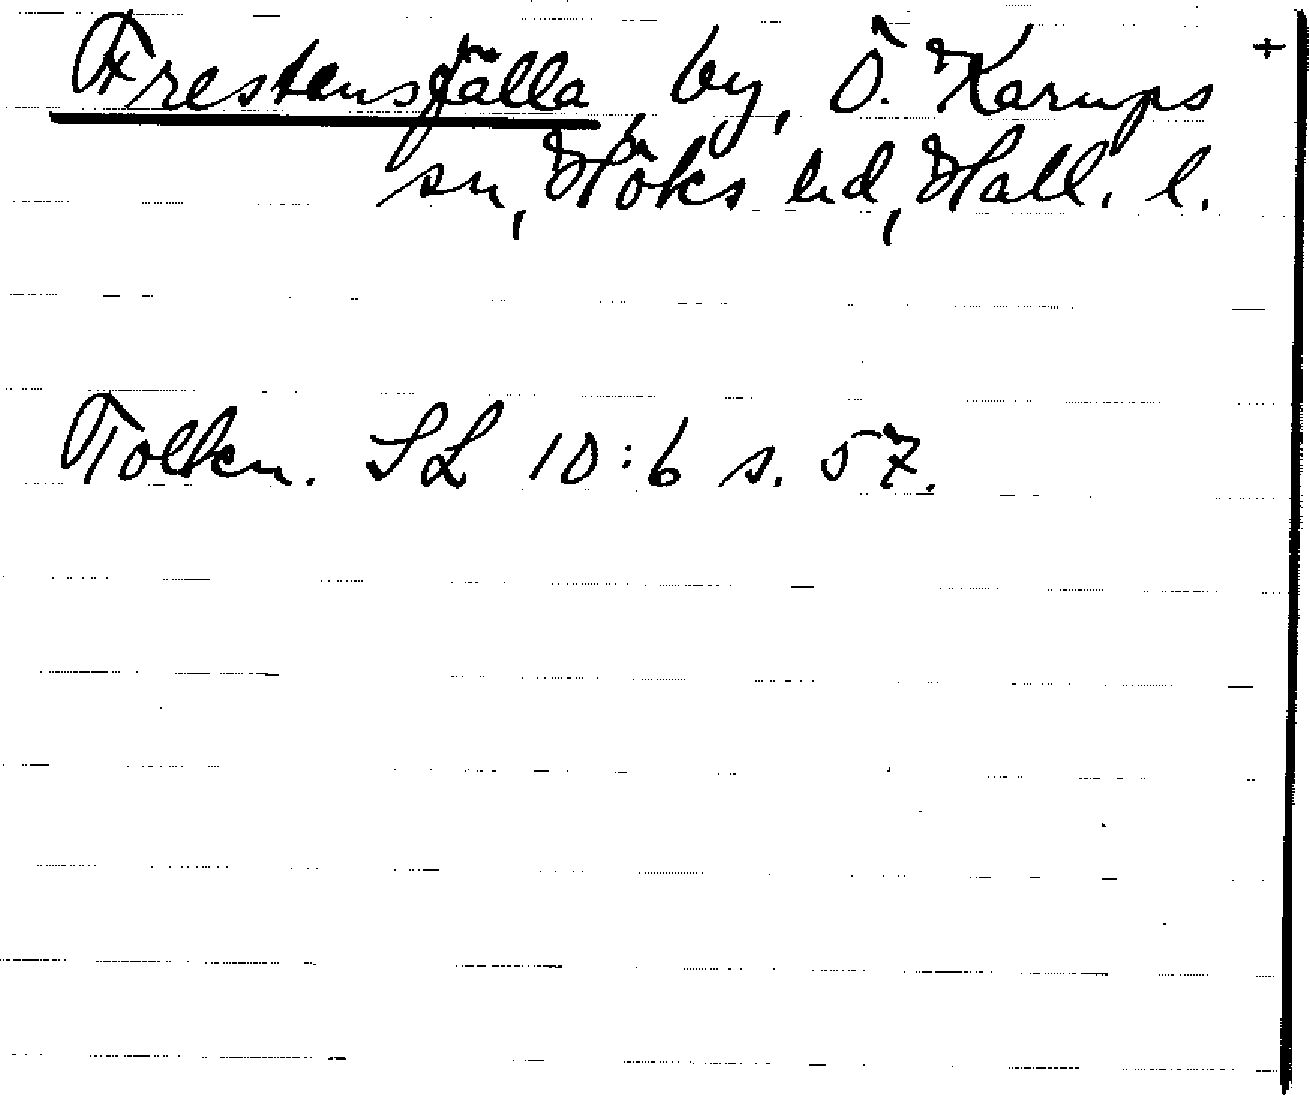 Frestensfälla, by, Ö. Karups +
sn, Höks hd, Hall. l.
Tolkn. SL 10:6 s. 57.